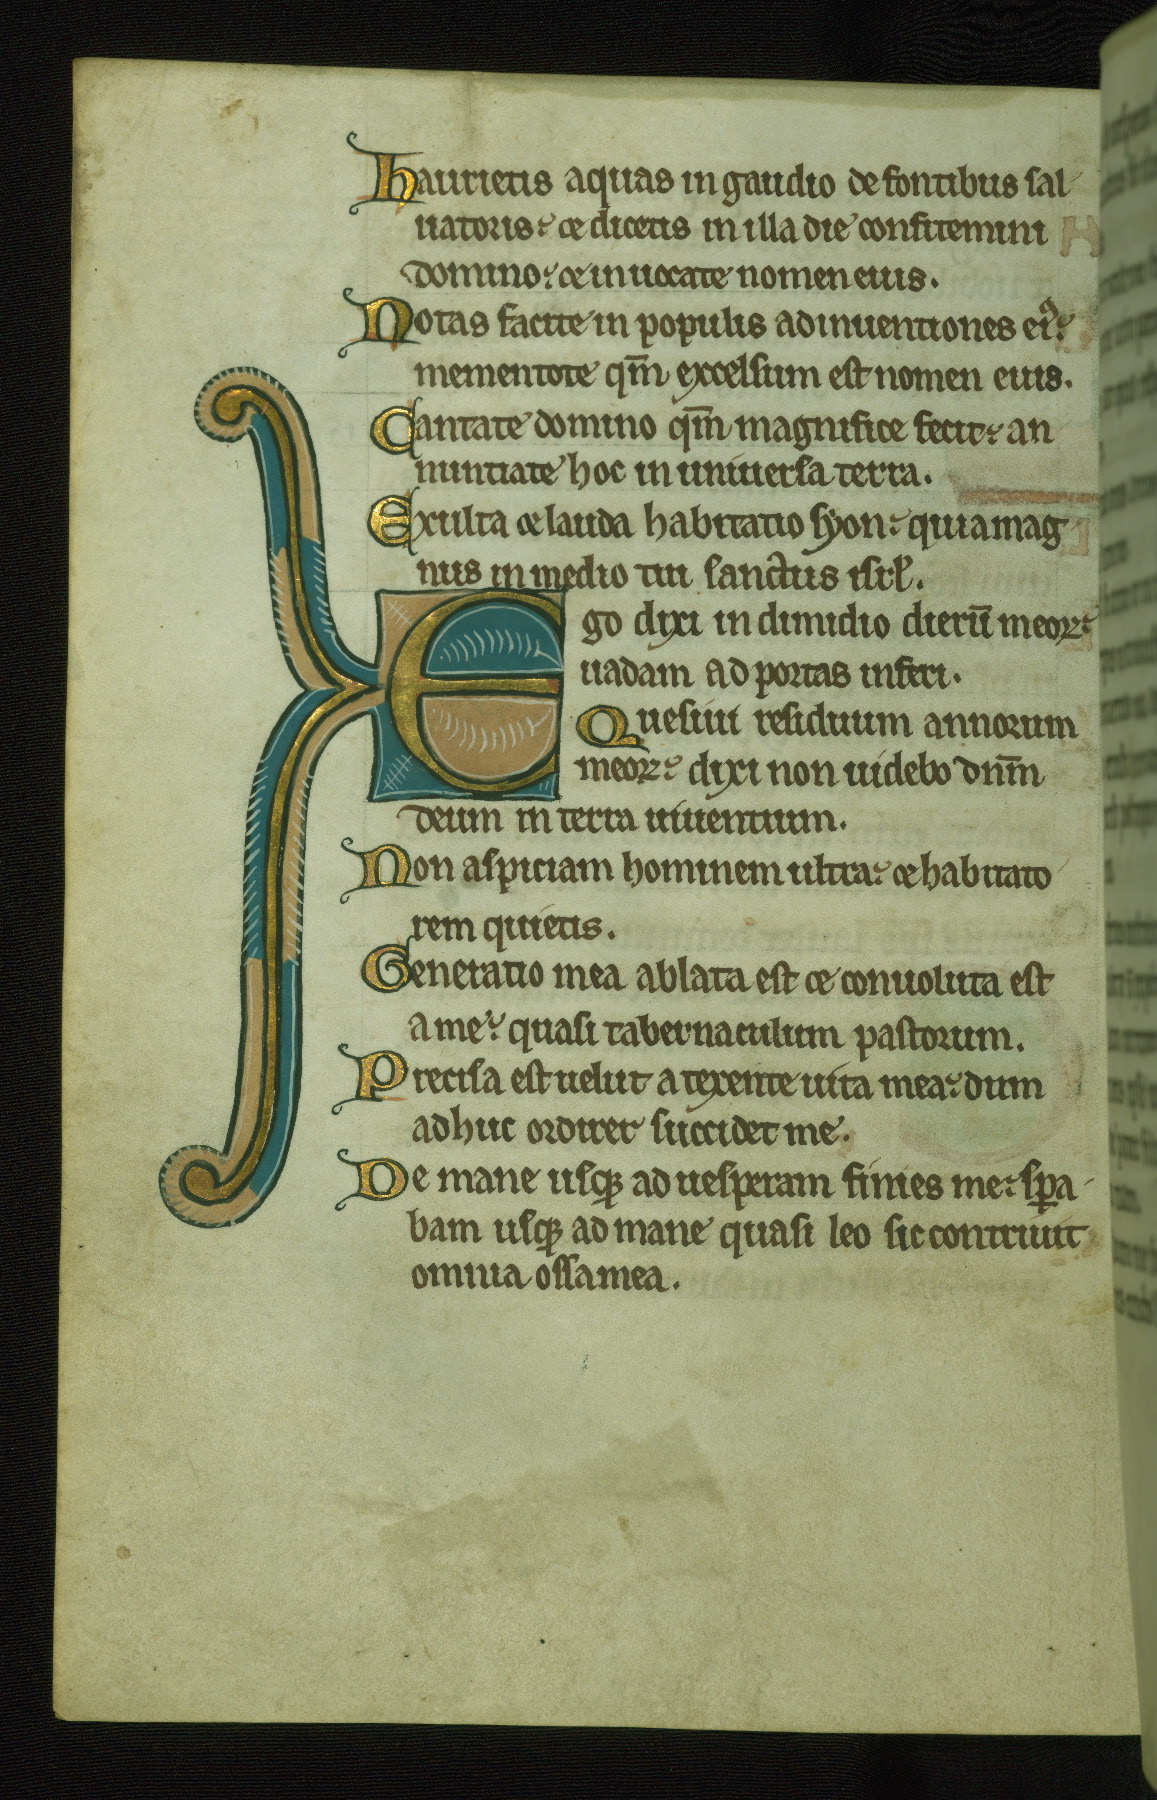 Haurietis aquas in gaudio de fontibus sal
uatoris: et dicetis in illa die confitemini
domino: et inuocate nomen eius.
Notas facite in populis adinuentiones ei9:
mementote qm̄ excelsum est nomen eius.
Cantate domino qm̄ magnifice fecit: an
nuntiate hoc in uniuersa terra.
Exulta et lauda habitatio syon: quia mag
nus in medio tui sanctus isrl̓.
Ego dixi in dimidio dierū meoꝝ:
uadam ad portas inferi.
Quesiui residuum annorum
meoꝝ: dixi non uidebo dn̄m
deum in terra uiuentium.
Non aspiciam hominem ultra: et habitato
rem quietis.
Generatio mea ablata est et conuoluta est
a me: quasi tabernaculum pastorum.
Precisa est uelut a texente uita mea: dum
adhuc ordirer succidet me.
De mane usqꝫ ad uesperam finies me: sꝑa
bam usqꝫ ad mane quasi leo sic contriuit
omnia ossa mea.